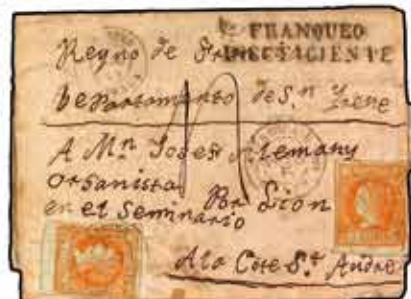 FRANQUEO
INSUFICIENTE
Reyno de
Departamento de Sn Yrene
A Mn Josef Alemany
Organista
en el Seminario
Por Lion
A la Cote St André